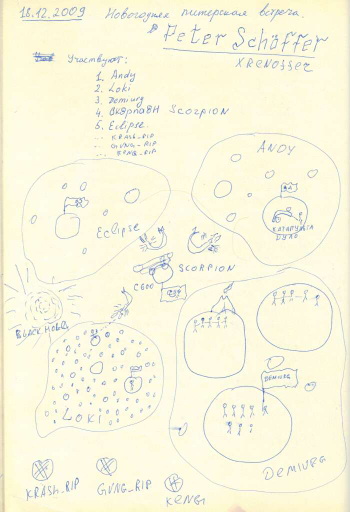 18.12.2009 Новогодняя питерская встреча.
В Peter Schöffer
XRENOSSEC
Участвуют:
1. Andy
2. Loki
3. Demiurg
4. СКОРПИОН SCORPION
5. Eclipse
... KRASH_RIP
... GUNG_RIP
... KENG_RIP
ANDY
Eclipse
КАТАПУЛЬТА
SCORPION
BLACK HOLE
DEMIURG
LOKI
DEMIURG
KRASH_RIP
GUNG_RIP
KENGI